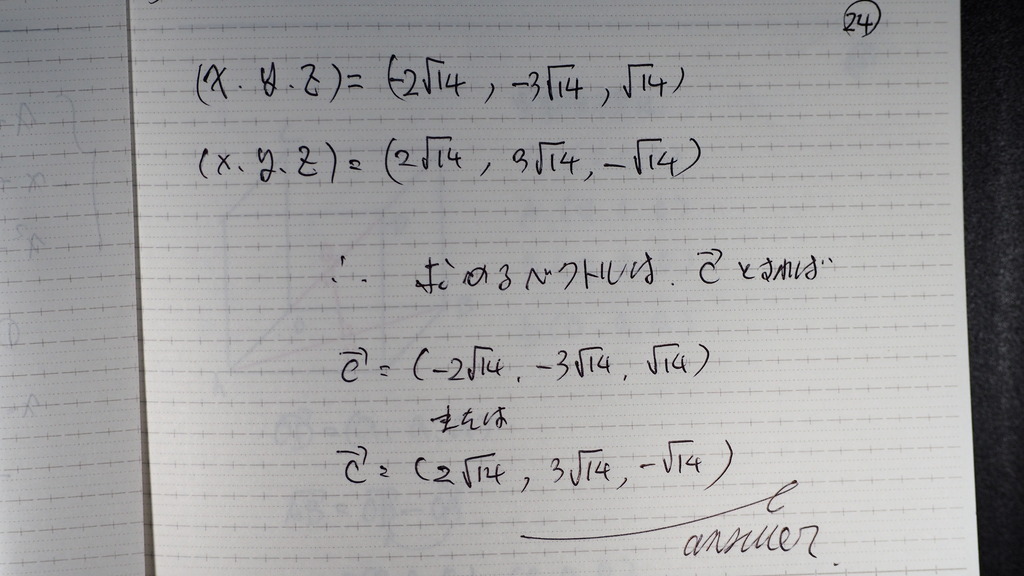 24
(x. y. z) = (-2√14, -3√14, √14)
(x. y. z) = (2√14, 3√14, -√14)
∴ 求めるベクトルは. c⃗ とすれば
c⃗ = (-2√14, -3√14, √14)
または
c⃗ = (2√14, 3√14, -√14)
answer.